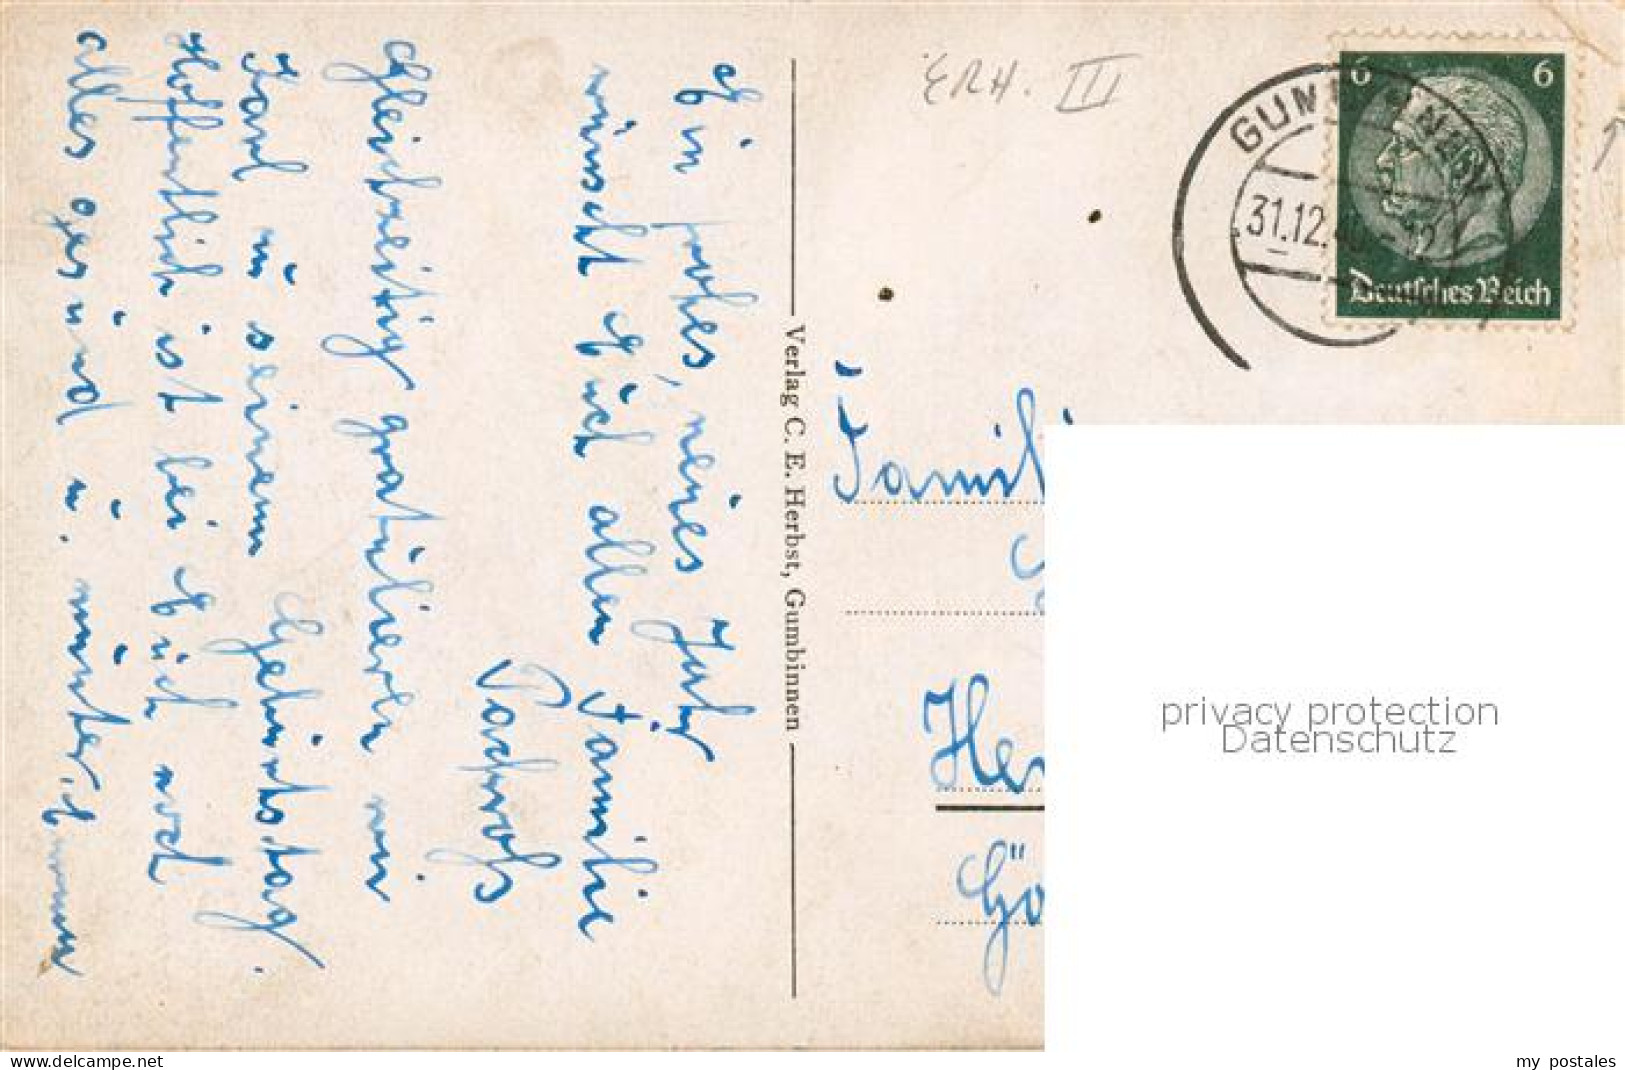 Ein frohes, neues Jahr
wünscht Euch allen Familie
Pachrohs
Gleichzeitig gratulieren wir
Karl zu seinem Geburtstag.
Hoffentlich ist bei Euch noch
alles gesund u. munter,
Verlag C. E. Herbst, Gumbinnen
ERH. III
GUMBINNEN
31.12.40.-12
6 6
Deutsches Reich
Famili
Her
Gö
privacy protection
Datenschutz
www.delcampe.net
my_postales